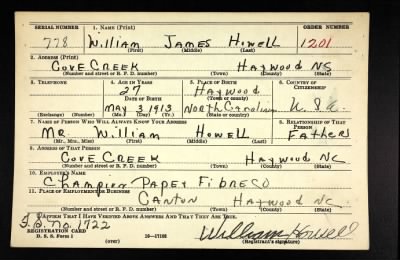 SERIAL NUMBER 1. NAME (Print) ORDER NUMBER
778 William James Howell 1201
(First) (Middle) (Last)
2. ADDRESS (Print)
Cove Creek Haywood NC
(Number and street or R. F. D. number) (Town) (County) (State)
3. TELEPHONE 4. AGE IN YEARS 5. PLACE OF BIRTH 6. COUNTRY OF CITIZENSHIP
27 Haywood
DATE OF BIRTH (Town or county)
May 3 1913 North Carolina U.S.A.
(Exchange) (Number) (Mo.) (Day) (Yr.) (State or country)
7. NAME OF PERSON WHO WILL ALWAYS KNOW YOUR ADDRESS 8. RELATIONSHIP OF THAT PERSON
Mr. William Howell Father
(Mr., Mrs., Miss) (First) (Middle) (Last)
9. ADDRESS OF THAT PERSON
Cove Creek Haywood NC
(Number and street or R. F. D. number) (Town) (County) (State)
10. EMPLOYER'S NAME
Champion Paper Fibre Co
11. PLACE OF EMPLOYMENT OR BUSINESS
Canton Haywood NC
(Number and street or R. F. D. number) (Town) (County) (State)
I AFFIRM THAT I HAVE VERIFIED ABOVE ANSWERS AND THAT THEY ARE TRUE.
I.B. No. 1722
REGISTRATION CARD
D. S. S. Form 1 (over) 16—17105 William Howell
(Registrant's signature)